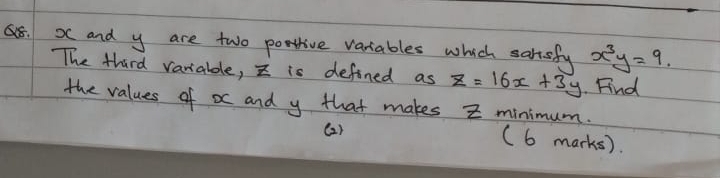 Q8. x and y are two positive variables which satisfy x³y = 9.
The third variable, z is defined as z = 16x + 3y. Find
the values of x and y that makes z minimum.
(2) (6 marks).